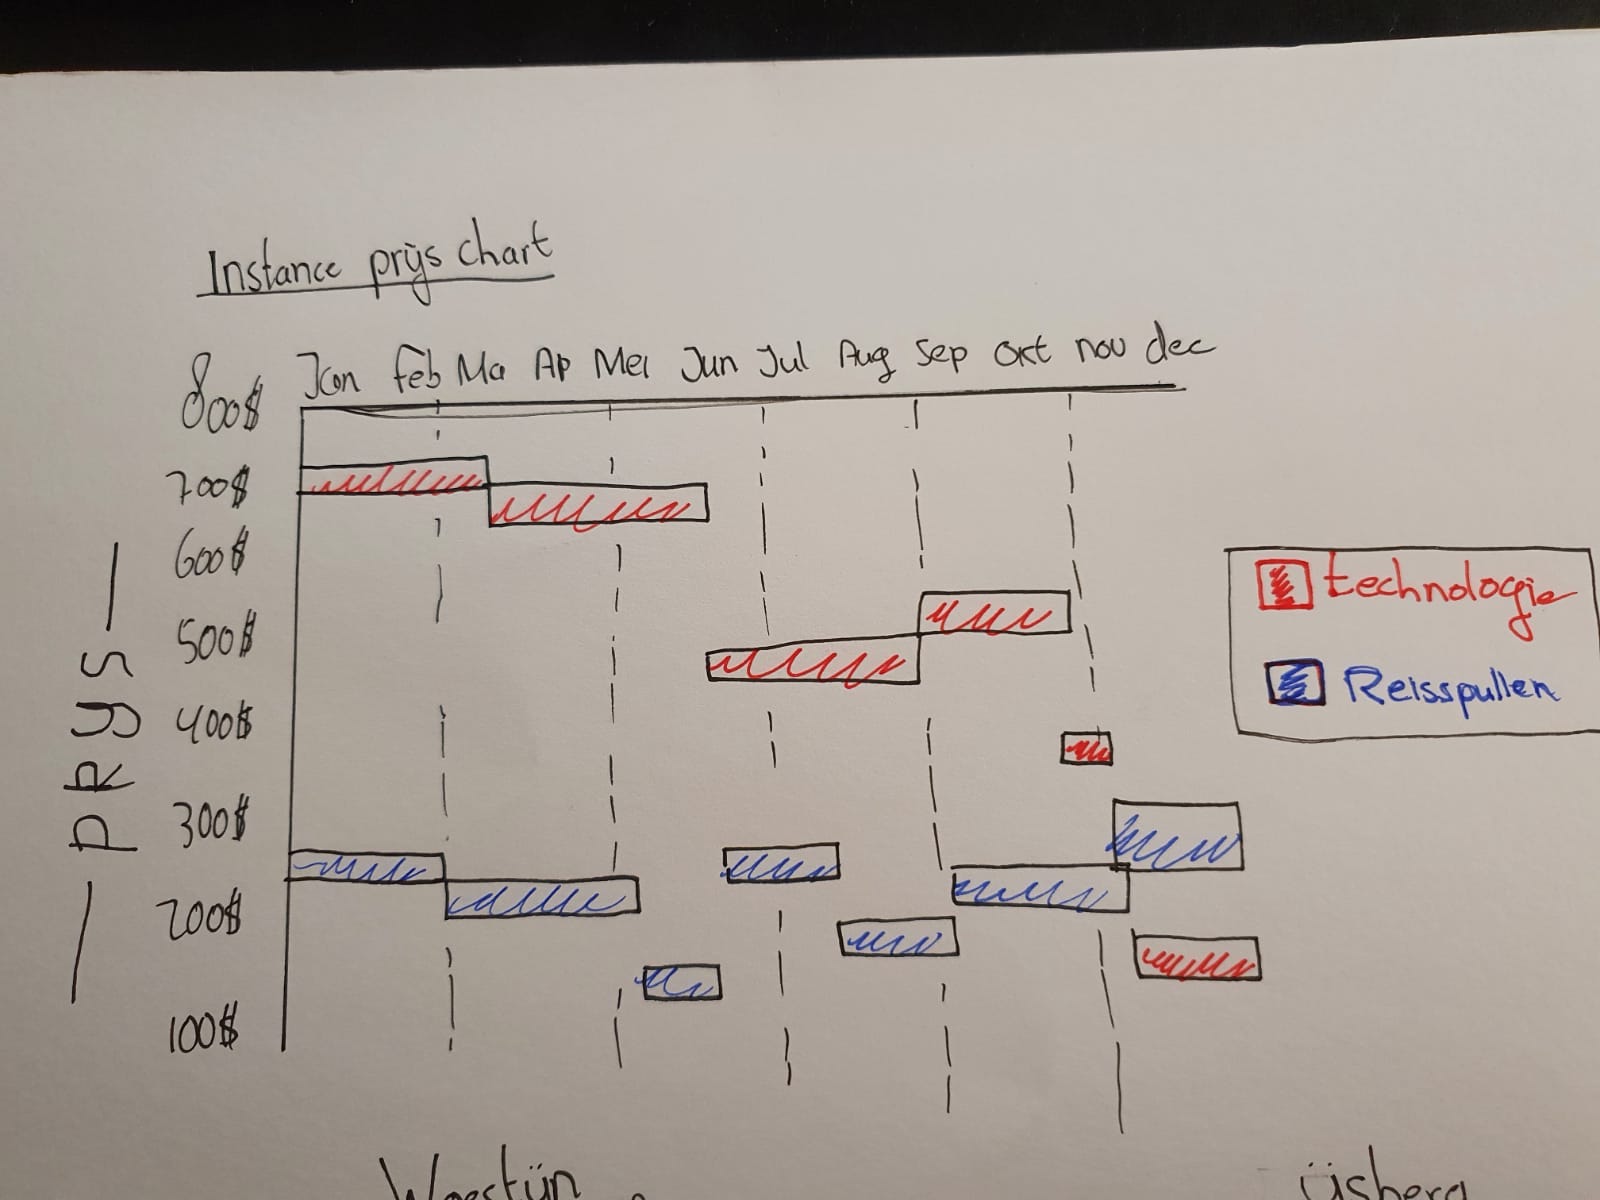 Instance prijs chart
Jan Feb Ma Ap Mei Jun Jul Aug Sep Okt nov dec
800$
700$
600$
500$
400$
300$
200$
100$
PRYS
technologie
Reisspullen
Woestijn
ijsberg